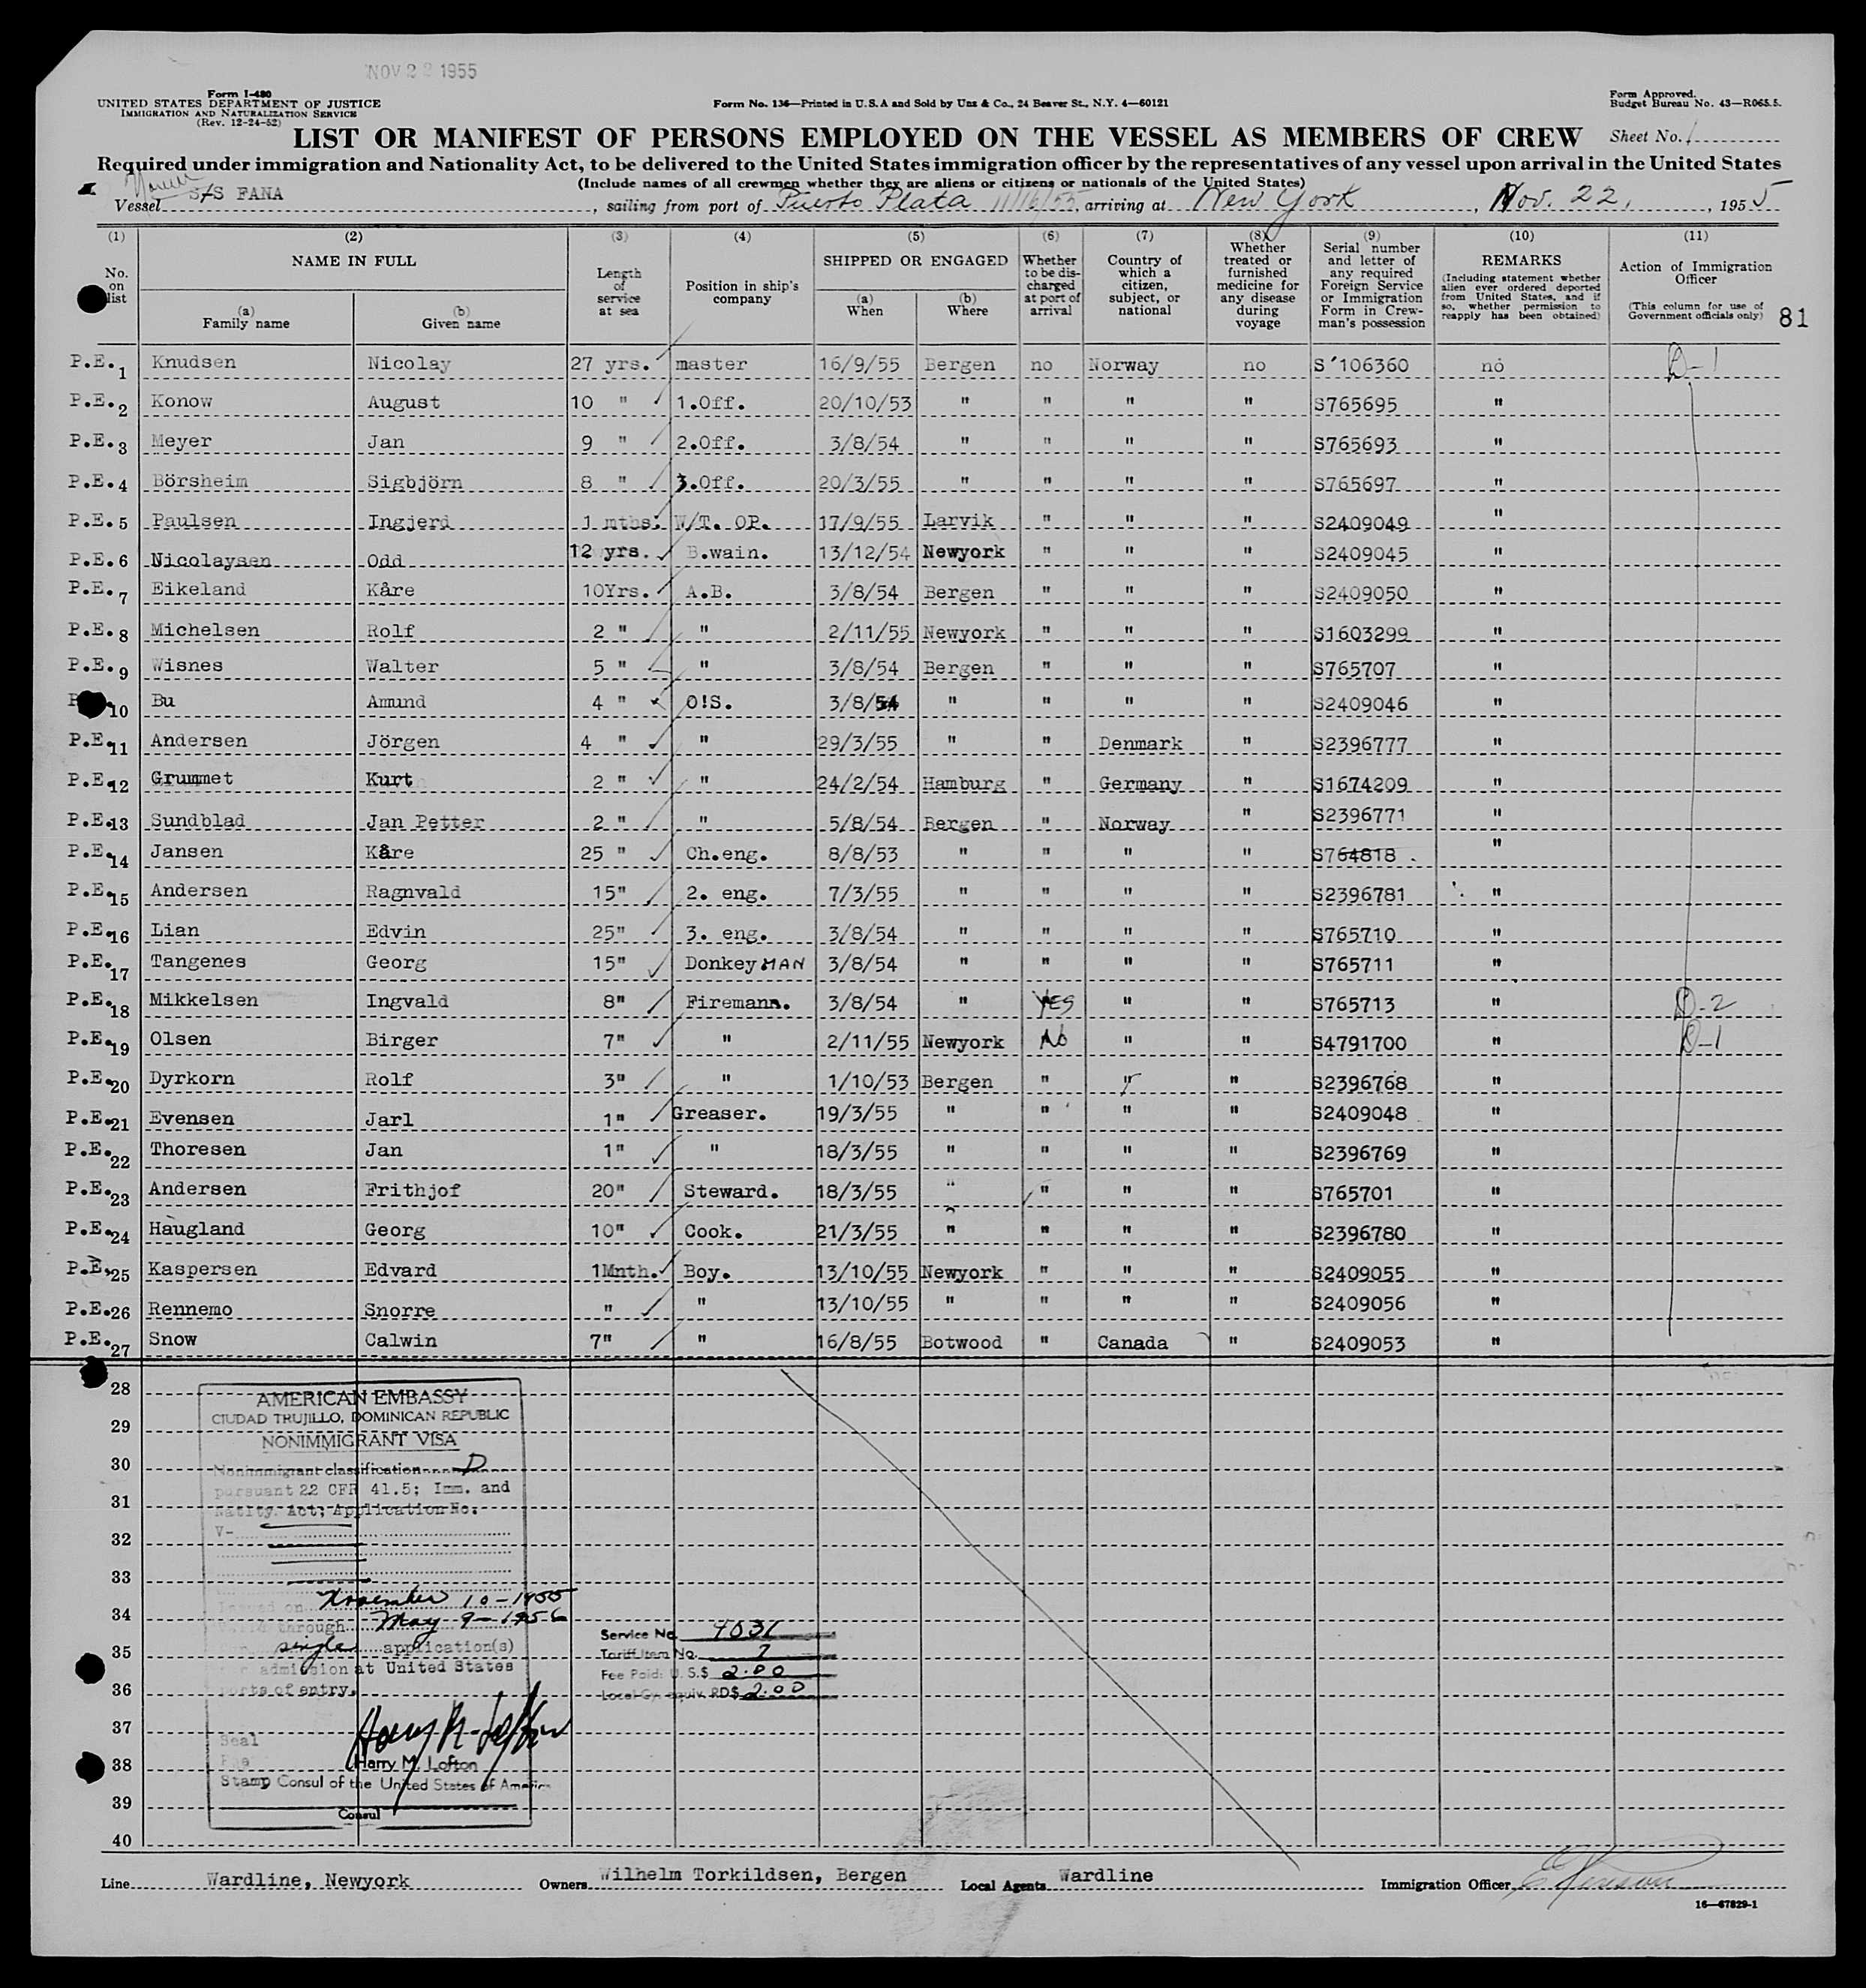 NOV 22 1955
Form I-480
UNITED STATES DEPARTMENT OF JUSTICE
IMMIGRATION AND NATURALIZATION SERVICE
(Rev. 12-24-52)
Form No. 136—Printed in U.S.A and Sold by Unz & Co., 24 Beaver St., N.Y. 4—60121
Form Approved.
Budget Bureau No. 43—R065.5.
LIST OR MANIFEST OF PERSONS EMPLOYED ON THE VESSEL AS MEMBERS OF CREW
Sheet No. 1
Required under immigration and Nationality Act, to be delivered to the United States immigration officer by the representatives of any vessel upon arrival in the United States
(Include names of all crewmen whether they are aliens or citizens or nationals of the United States)
Vessel S/S FANA, sailing from port of Puerto Plata 11/16/55, arriving at New York, Nov. 22, 1955
(1) (2) (3) (4) (5) (6) (7) (8) (9) (10) (11)
No. on list
NAME IN FULL
(a) Family name
(b) Given name
Length of service at sea
Position in ship's company
SHIPPED OR ENGAGED
(a) When
(b) Where
Whether to be discharged at port of arrival
Country of which a citizen, subject, or national
Whether treated or furnished medicine for any disease during voyage
Serial number and letter of any required Foreign Service or Immigration Form in Crewman's possession
REMARKS
(Including statement whether alien ever ordered deported from United States, and if so, whether permission to reapply has been obtained)
Action of Immigration Officer
(This column for use of Government officials only)
81
P.E. 1 Knudsen Nicolay 27 yrs. master 16/9/55 Bergen no Norway no S'106360 no D-1
P.E. 2 Konow August 10 " 1.Off. 20/10/53 " " " " S765695 "
P.E. 3 Meyer Jan 9 " 2.Off. 3/8/54 " " " " S765693 "
P.E. 4 Börsheim Sigbjörn 8 " 3.Off. 20/3/55 " " " " S765697 "
P.E. 5 Paulsen Ingjerd 1 mths. W/T. OP. 17/9/55 Larvik " " " S2409049 "
P.E. 6 Nicolaysen Odd 12 yrs. B.wain. 13/12/54 Newyork " " " S2409045 "
P.E. 7 Eikeland Kåre 10Yrs. A.B. 3/8/54 Bergen " " " S2409050 "
P.E. 8 Michelsen Rolf 2 " " 2/11/55 Newyork " " " S1603299 "
P.E. 9 Wisnes Walter 5 " " 3/8/54 Bergen " " " S765707 "
10 Bu Amund 4 " O!S. 3/8/54 " " " " S2409046 "
P.E. 11 Andersen Jörgen 4 " " 29/3/55 " " Denmark " S2396777 "
P.E. 12 Grummet Kurt 2 " " 24/2/54 Hamburg " Germany " S1674209 "
P.E. 13 Sundblad Jan Petter 2 " " 5/8/54 Bergen " Norway " S2396771 "
P.E. 14 Jansen Kåre 25 " Ch.eng. 8/8/53 " " " " S764818 "
P.E. 15 Andersen Ragnvald 15" 2. eng. 7/3/55 " " " " S2396781 "
P.E. 16 Lian Edvin 25" 3. eng. 3/8/54 " " " " S765710 "
P.E. 17 Tangenes Georg 15" Donkey MAN 3/8/54 " " " " S765711 "
P.E. 18 Mikkelsen Ingvald 8" Firemann. 3/8/54 " YES " " S765713 " D-2
P.E. 19 Olsen Birger 7" " 2/11/55 Newyork No " " S4791700 " D-1
P.E. 20 Dyrkorn Rolf 3" " 1/10/53 Bergen " " " S2396768 "
P.E. 21 Evensen Jarl 1" Greaser. 19/3/55 " " " " S2409048 "
P.E. 22 Thoresen Jan 1" " 18/3/55 " " " " S2396769 "
P.E. 23 Andersen Frithjof 20" Steward. 18/3/55 " " " " S765701 "
P.E. 24 Haugland Georg 10" Cook. 21/3/55 " " " " S2396780 "
P.E. 25 Kaspersen Edvard 1Mnth. Boy. 13/10/55 Newyork " " " S2409055 "
P.E. 26 Rennemo Snorre " " 13/10/55 " " " " S2409056 "
P.E. 27 Snow Calwin 7" " 16/8/55 Botwood " Canada " S2409053 "
28
29
30
31
32
33
34
35
36
37
38
39
40
AMERICAN EMBASSY
CIUDAD TRUJILLO, DOMINICAN REPUBLIC
NONIMMIGRANT VISA
Nonimmigrant classification D
pursuant 22 CFR 41.5; Imm. and
Natlty. Act; Application No.
V-
Issued on November 10-1955
Valid through May 9-1956
for single application(s)
for admission at United States
ports of entry.
Seal
Fee
Stamp
Harry M. Lofton
Harry M. Lofton
Consul of the United States of America
Consul
Service No. 4031
Tariff Item No. 7
Fee Paid: U.S.$ 2.00
Local Cy. equiv. RD$ 2.00
Line Wardline, Newyork
Owners Wilhelm Torkildsen, Bergen
Local Agents Wardline
Immigration Officer
16—67829-1